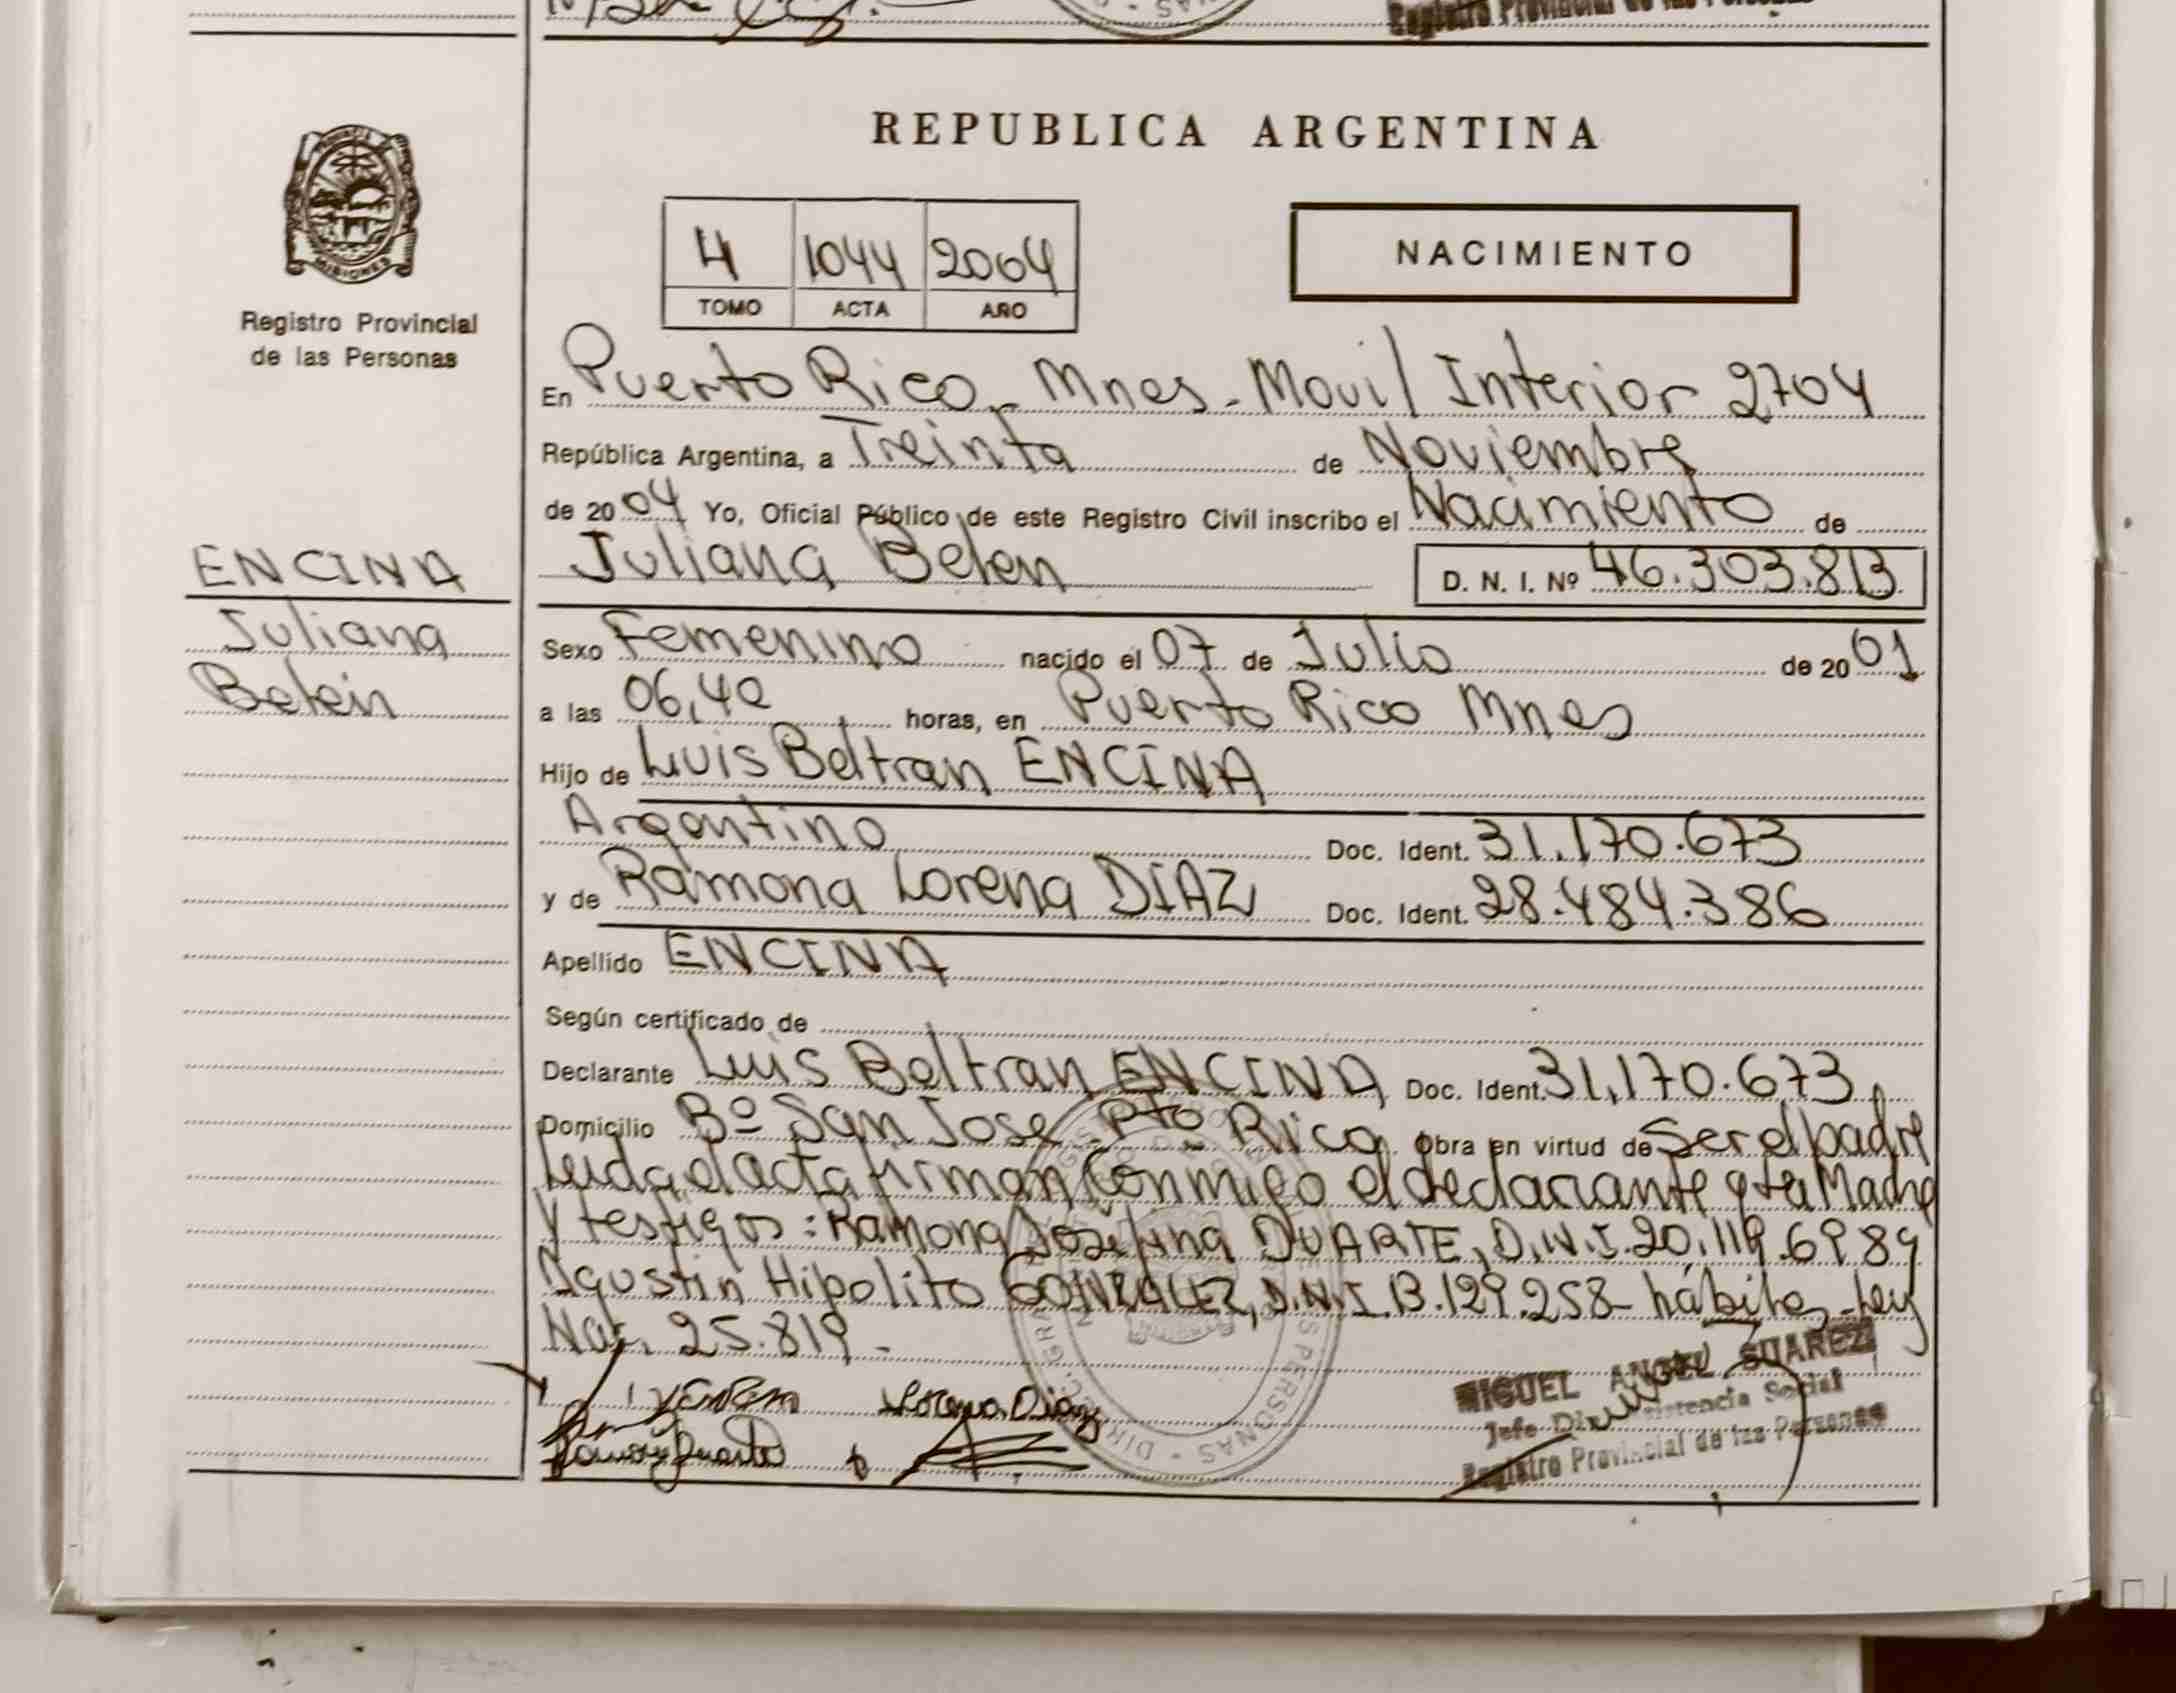 REPUBLICA ARGENTINA
MISIONES
Registro Provincial
de las Personas
4 1044 2004
TOMO ACTA AÑO
NACIMIENTO
En Puerto Rico - Mnes - Movil Interior 2704
República Argentina, a Treinta de Noviembre
de 2004 Yo, Oficial Público de este Registro Civil inscribo el Nacimiento de
Juliana Belen D. N. I. Nº 46.303.813
ENCINA
Juliana
Belén
Sexo Femenino nacido el 07 de Julio de 2001
a las 06,40 horas, en Puerto Rico Mnes
Hijo de Luis Beltran ENCINA
Argentino Doc. Ident. 31.170.673
y de Ramona Lorena DIAZ Doc. Ident. 28.484.386
Apellido ENCINA
Según certificado de
Declarante Luis Beltran ENCINA Doc. Ident. 31.170.673
Domicilio Bº San Jose Pto Rico Obra en virtud de Ser el padre
Leida el acta firman Conmigo el declarante y la Madre
y testigos: Ramona Josefina DUARTE, D.N.I. 20.119.698 y
Agustin Hipolito GONZALEZ, D.N.I. 13.129.258 - hábiles - Ley
Nac. 25.819 -
Lorena Diaz
MIGUEL ANGEL SUAREZ
Jefe Asistencia Social
Registro Provincial de las Personas